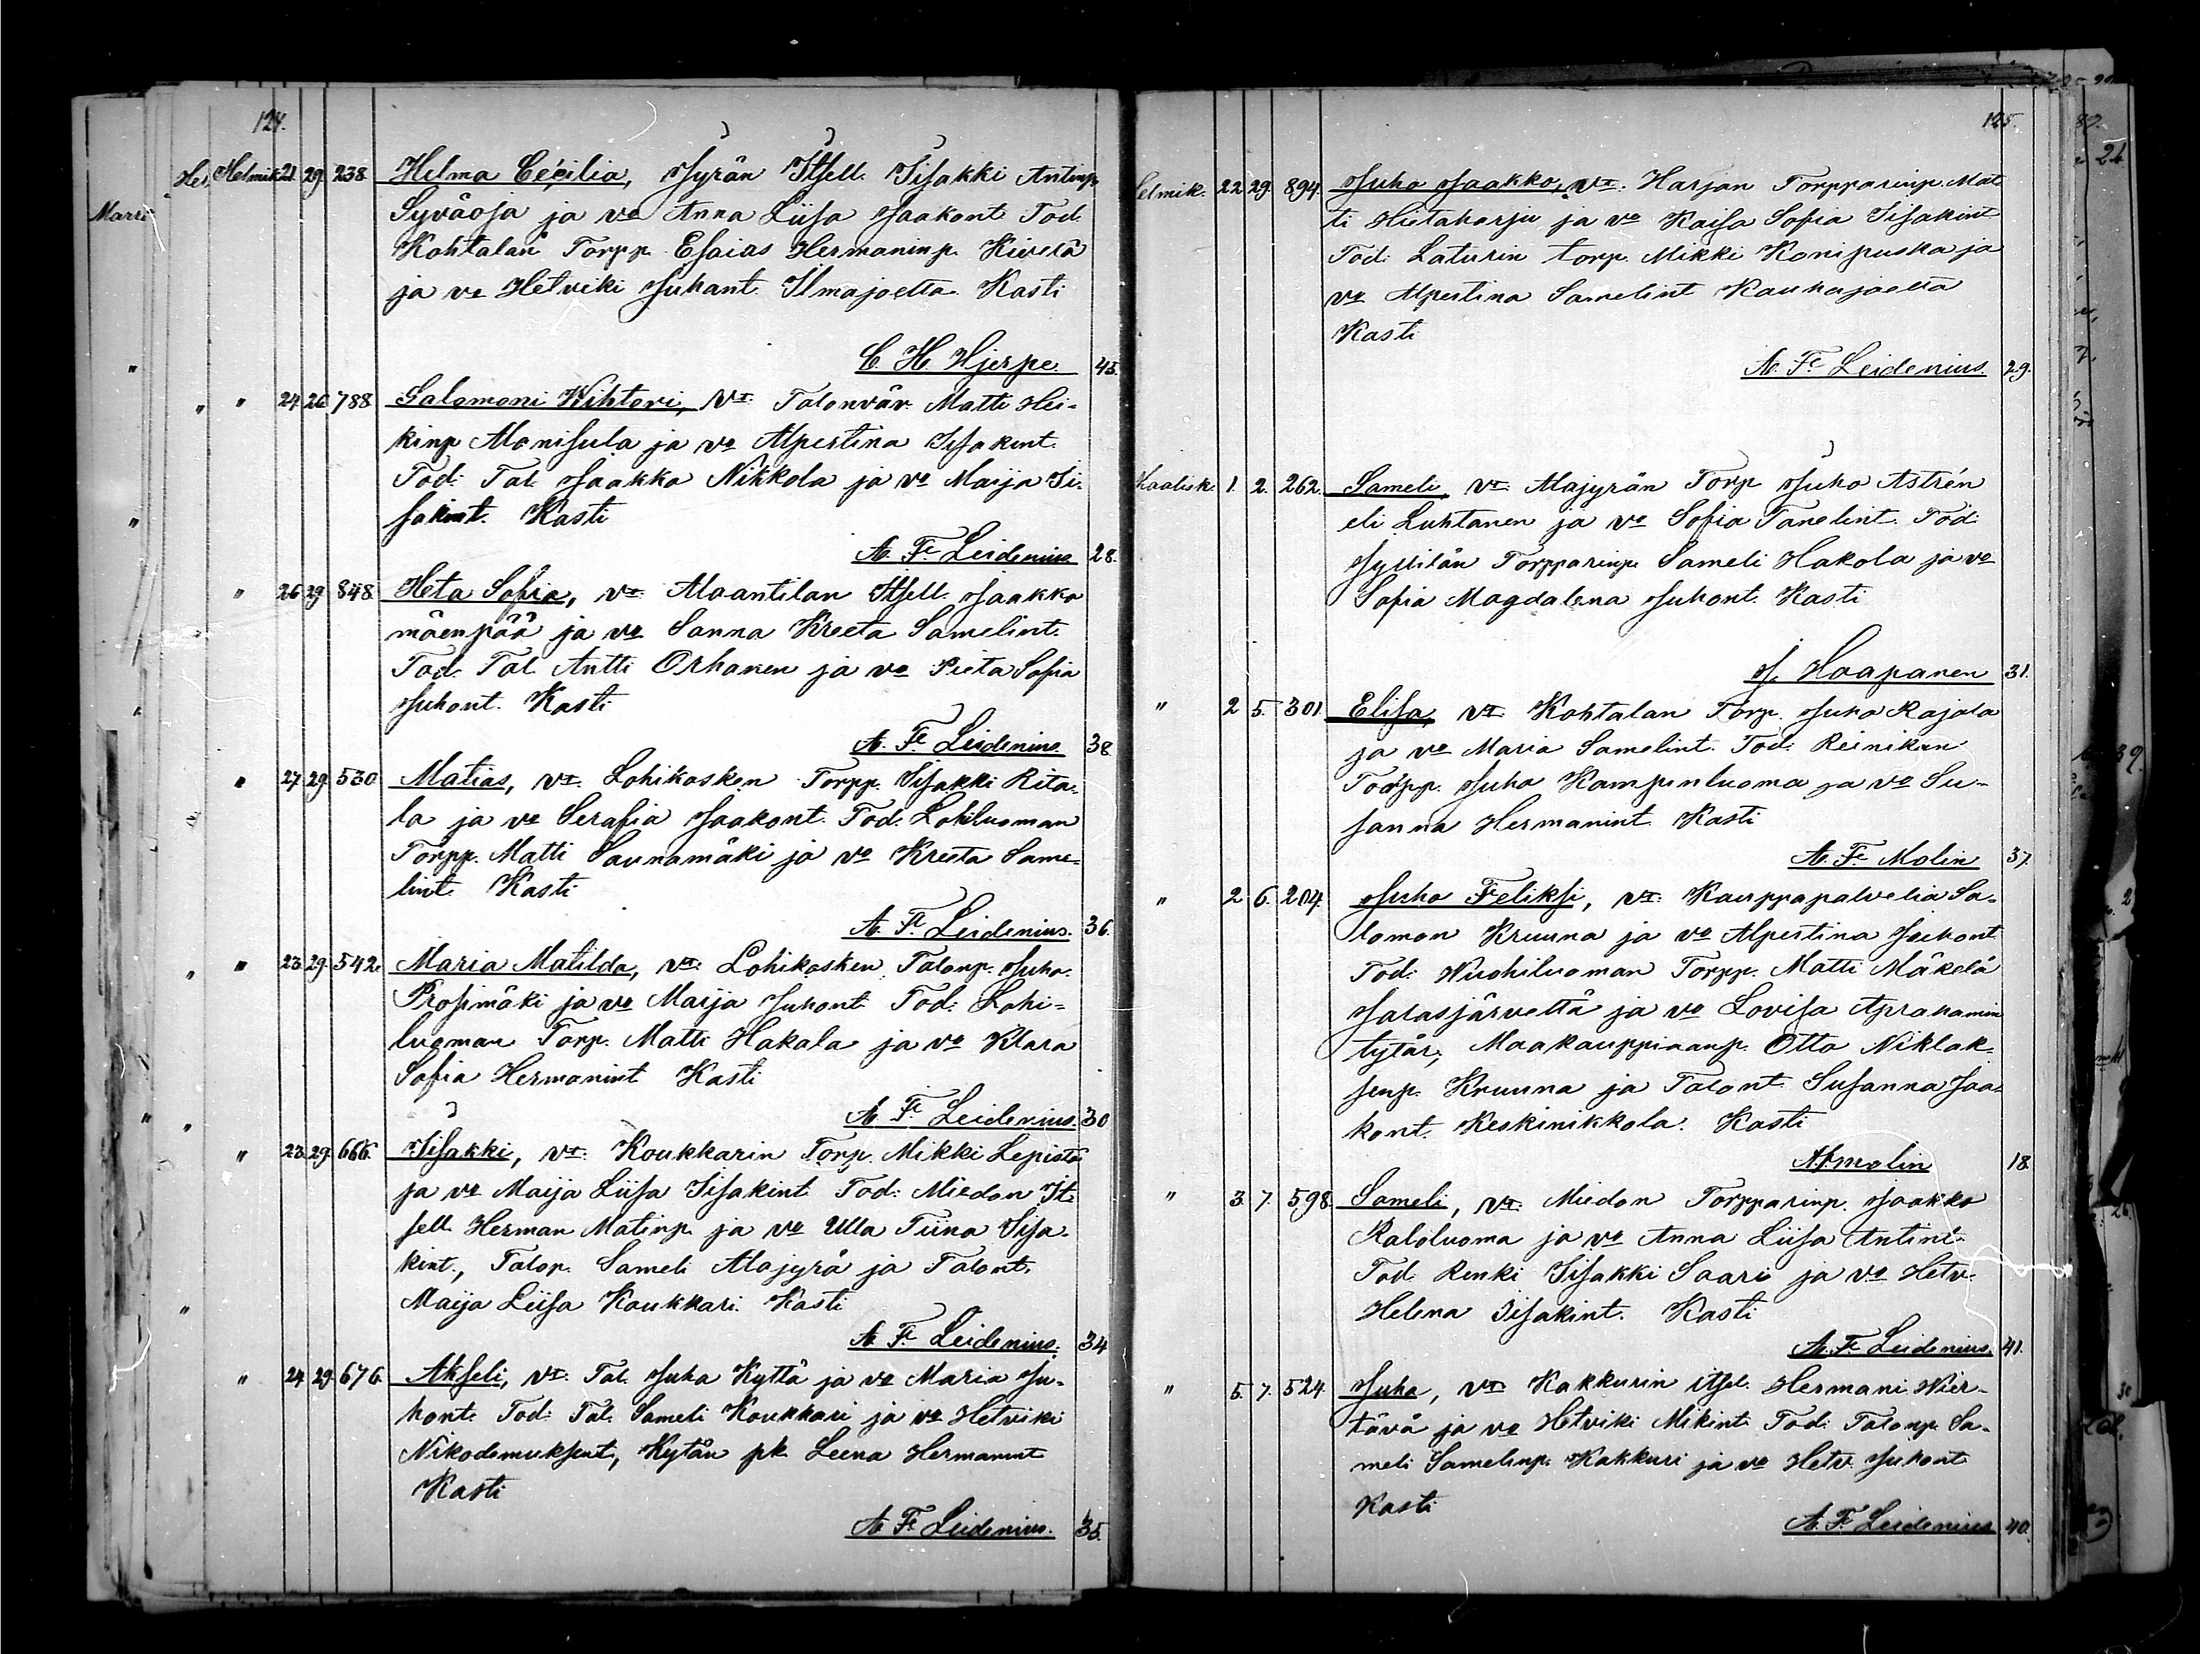 124.
Helmik. 21. 29. 238. Helma Cecilia, Jyrän Itsell. Iisakki Antinp.
Syväoja ja vo Anna Liisa Jaakont. Tod.
Kohtalan Torpp. Esaias Hermaninp. Kivelä
ja vo Hetviki Juhant. Ilmajoelta. Kasti
C. H. Hjerpe. 45.
" " 24 26 788 Salomoni Wihtori, vt. Talonväv. Matti Hei-
kinp. ja vo Alpertina Iisakint.
Tod: Tal. Jaakko Nikkola ja vo Maija Ii-
sakint. Kasti
A. F. Leidenius 28.
" 26 29 848. Heta Sofia, vt. Ala antilan Itsell. Jaakko
mäenpää ja vo Sanna Kreeta Samelint.
Tod. Tal. Antti Orhanen ja vo Pieta Sofia
Juhont. Kasti
A. F. Leidenius. 38
" 27 29. 530 Matias, vt. Lohikosken Torpp. Iisakki Rita-
la ja vo Serafia Jaakont. Tod. Lohiluoman
Torpp. Matti Saunamäki ja vo Kreeta Same-
lint. Kasti
A. F. Leidenius. 36.
" " 23 29. 542. Maria Matilda, vt. Lohikosken Talonp. Juho.
Prosimäki ja vo Maija Juhont. Tod: Lohi-
luoman Torp. Matti Hakala ja vo Klara
Sofia Hermanint Kasti
A. F. Leidenius. 30
" 23 29. 666. Iisakki, vt. Koukkarin Torp. Mikki Lepistö
ja vo Maija Liisa Iisakint Tod: Miedon It-
sell. Herman Matinp. ja vo Ulla Tiina Iisa-
kint., Talop. Sameli Alajyrä ja Talont.
Maija Liisa Koukkari. Kasti
A. F. Leidenius. 34
" 24 29. 676. Akseli, vt. Tal. Juha Kyttä ja vo Maria Ju-
hont. Tod: Tal. Sameli Koukkari ja vo Hetviki
Nikodemuksent, Kytän pk. Leena Hermanint
Kasti
A. F. Leidenius. 35.
125.
Helmik. 22. 29. 894. Juho Jaakko, vt. Harjan Torpparinp. Mat
ti Hietaharju ja vo Kaisa Sofia Iisakint
Tod: Laturin torp. Mikki Konipuska ja
vo Alpertina Samelint Kauhajoelta
Kasti
A. F. Leidenius. 29.
Maalisk. 1. 2. 262. Sameli, vt. Alajyrän Torp Juho
eli Luhtanen ja vo Sofia Tanelint. Tod:
Jyllilän Torpparinp. Sameli Hakola ja vo
Sofia Magdalena Juhont. Kasti
J. Haapanen 31.
" 2 5. 301. Elisa, vt. Kohtalan Torp. Juho Rajala
ja vo Maria Samelint. Tod: Reinikan
Torpp. Juho Kampinluoma ja vo Su-
sanna Hermanint. Kasti
A. F. Molin 37.
" 2 6. 204. Juho Feliksi, vt. Kauppapalvelia Sa-
lomon Kruuna ja vo Alpertina Juhont
Tod: Wuohiluoman Torpp. Matti Mäkelä
Jalasjärveltä ja vo Lovisa Aprahamin
tytär, Maakauppiaanp. Otto Niklak-
senp. Kruuna ja Talont. Susanna Jaa-
kont. Keskinikkola. Kasti
A. F. Molin 18.
" 3. 7. 598. Sameli, vt. Miedon Torpparinp. Jaakko
Kaloluoma ja vo Anna Liisa Antint.
Tod. Renki Iisakki Saari ja vo Hetv.
Helena Iisakint. Kasti
A. F. Leidenius. 41.
" 5. 7. 524. Juho, vt. Kakkurin itsel. Hermani Wier-
tävä ja vo Hetviki Mikint. Tod: Talonp. Sa-
meli Samelinp. Kakkuri ja vo Hetv. Juhont
Kasti
A. F. Leidenius 40.